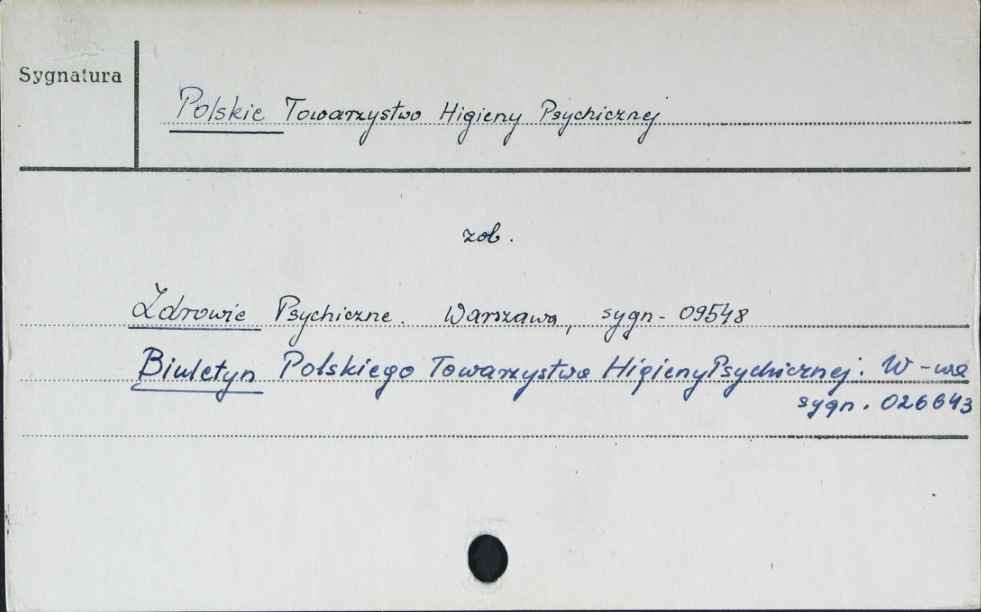 Sygnatura
Polskie Towarzystwo Higieny Psychicznej
zob.
Zdrowie Psychiczne. Warszawa, sygn- 09548
Biuletyn Polskiego Towarzystwa Higieny Psychicznej. W-wa
sygn. 026643